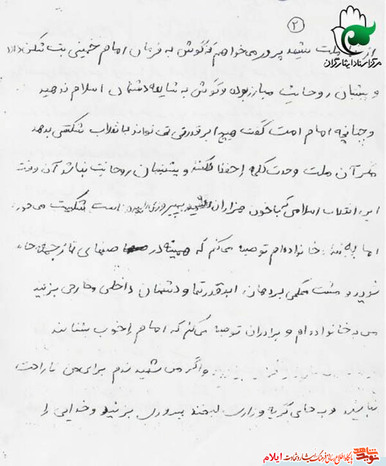 ۲
از ملت شهید پرور می‌خواهم که گوش به فرمان امام خمینی بت شکن دارند
و پشتیبان روحانیت مبارز بوده و گوش به شایعه دشمنان اسلام ندهید
و چنانچه امام امت گفت هیچ ابرقدرتی نمی تواند به انقلاب شکستی بدهد
مگر آن ملت وحدت کلمه را حفظ نکنند و پشتیبان روحانیت نباشد آن وقت
این انقلاب اسلامی که با خون هزاران شهید به پیروزی رسیده است شکست می خورد
اما به خانواده‌ام توصیه می‌کنم که همیشه در صف‌های نماز جمعه حاضر
شوید و مشت محکمی بر دهان ابرقدرتها و دشمنان داخلی و خارجی بزنید
من به خانواده‌ام و برادران توصیه می‌کنم که امام را خوب بشناسند
و اگر من شهید شدم برای من ناراحت
نباشید و به جای گریه و زاری لبخند پیروزی بزنید و خدایی را
مرکز اسناد ایثارگران
نوید شاهد
پایگاه اطلاع رسانی فرهنگ ایثار و شهادت ایلام